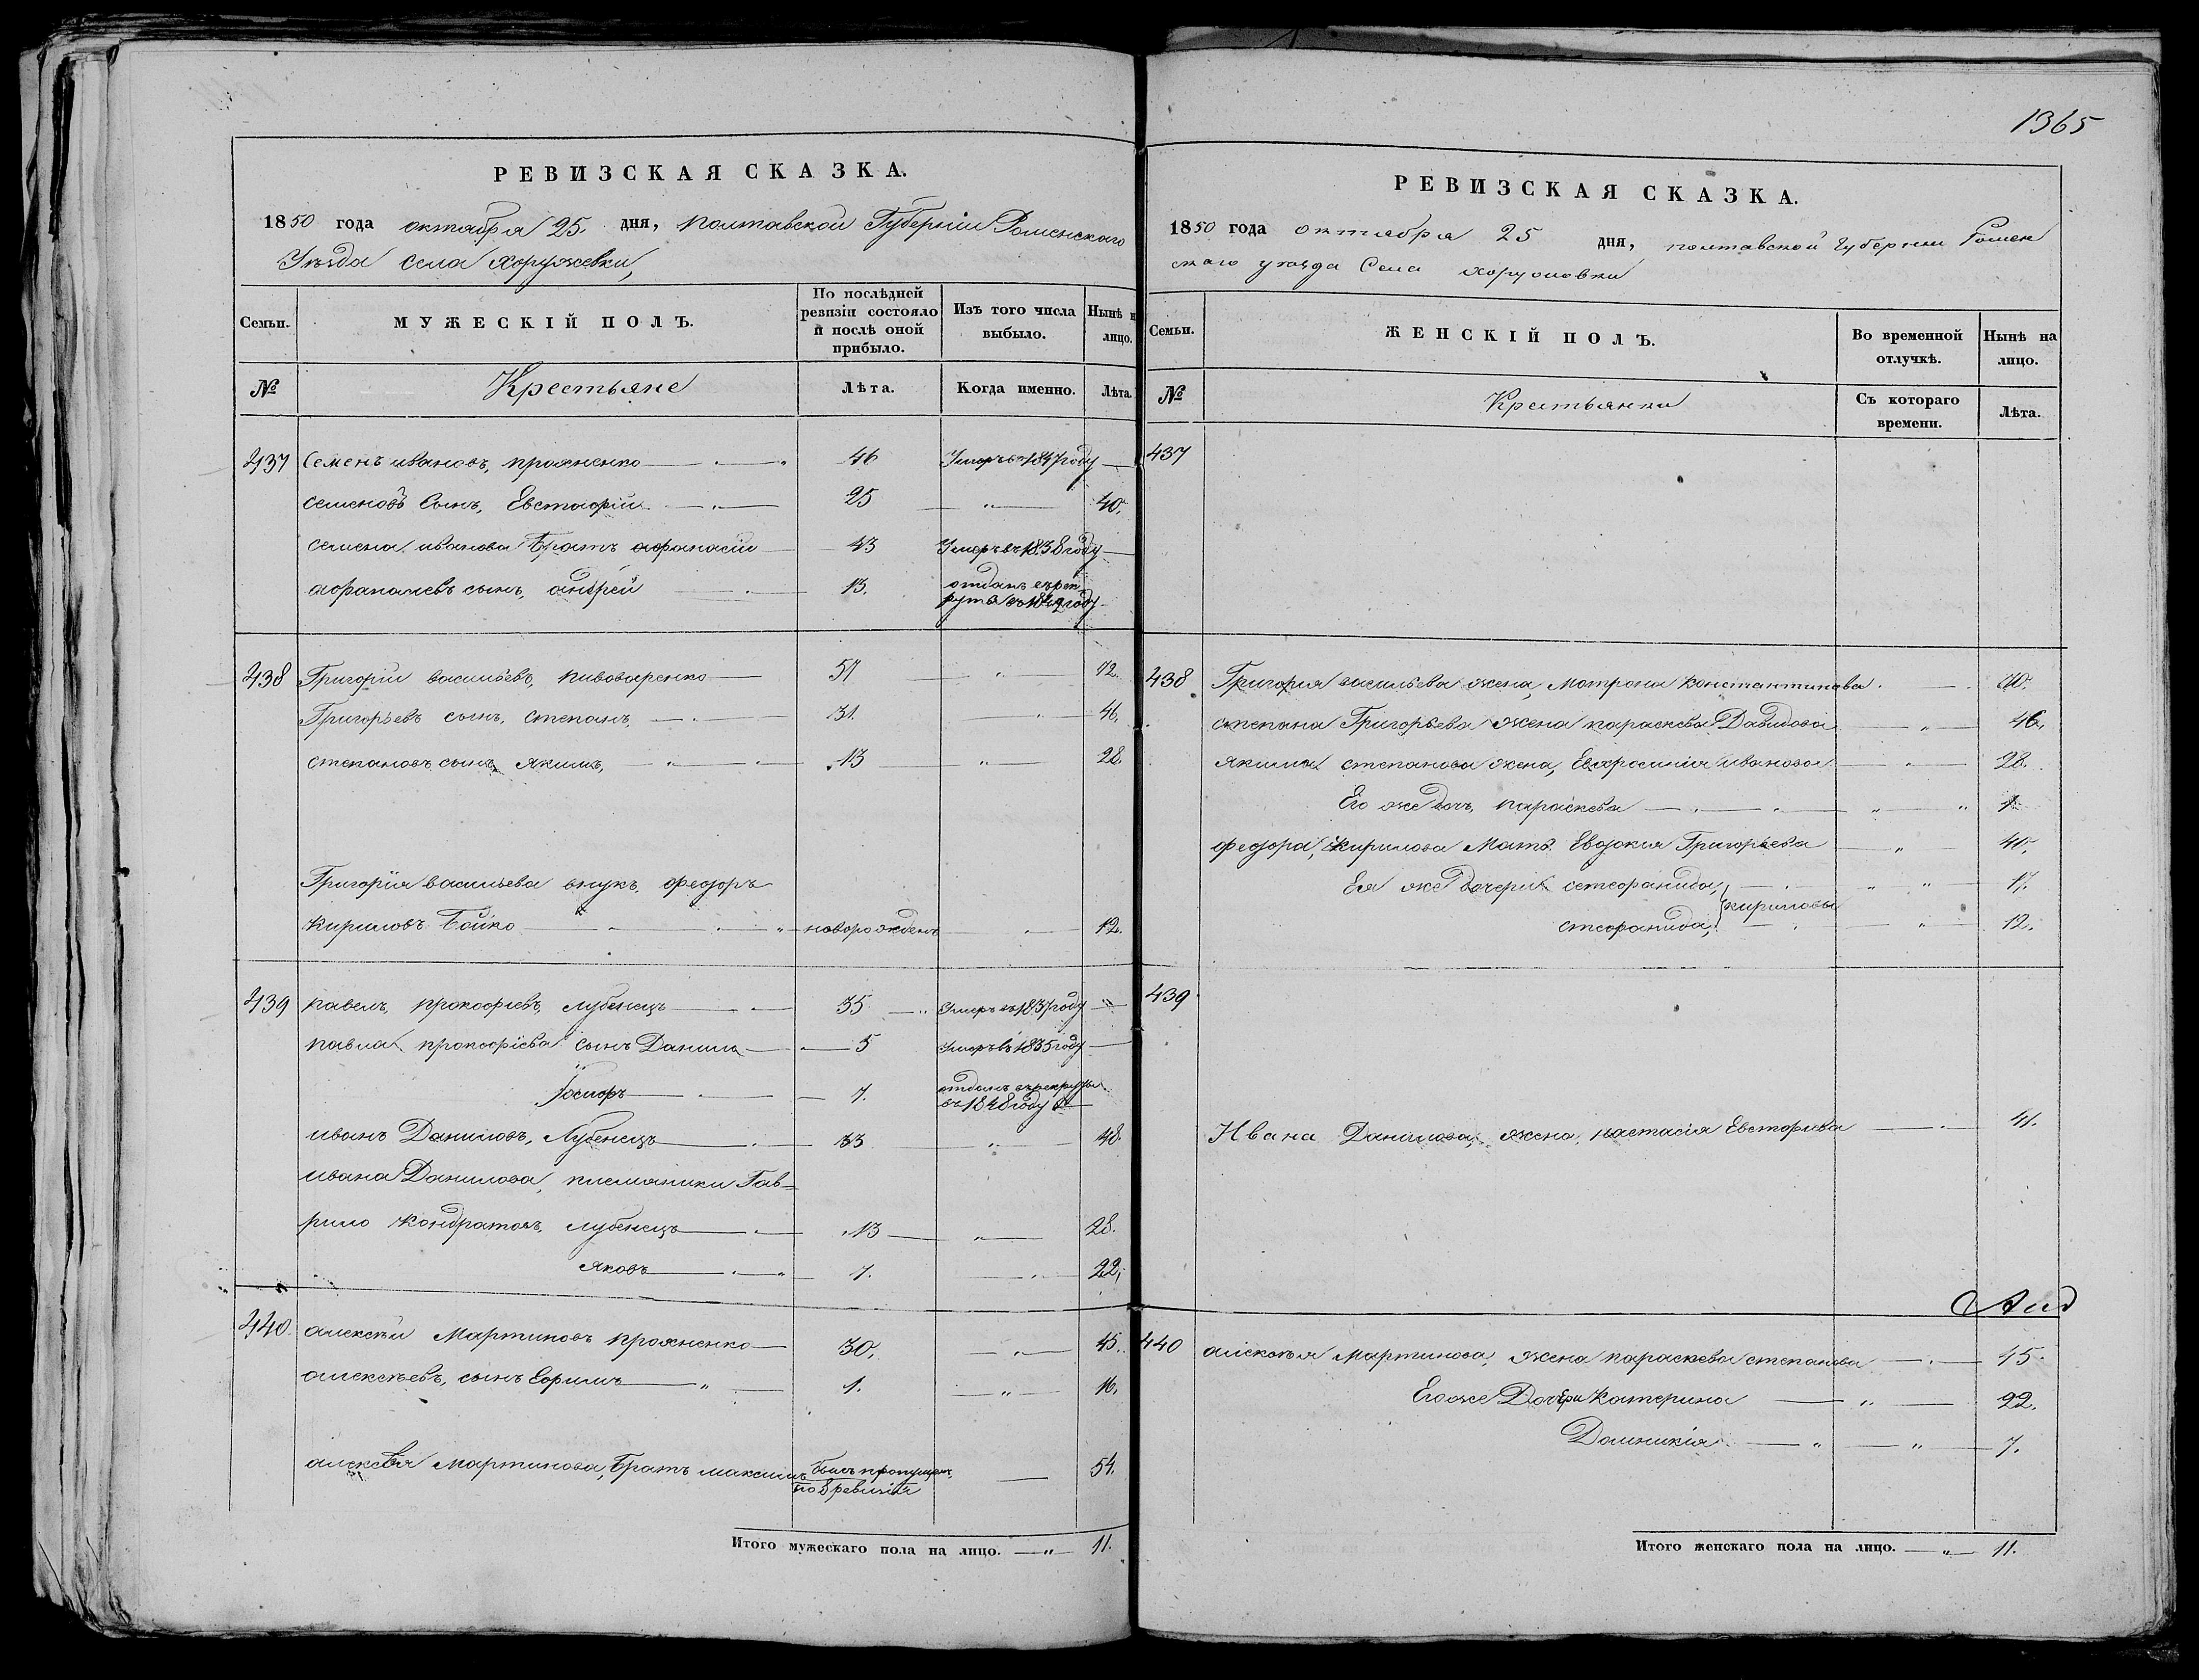 1365
РЕВИЗСКАЯ СКАЗКА.
1850 года октября 25. дня, Полтавской Губерніи Роменскаго
Уѣзда села Хоружевки,
Семьи.
МУЖЕСКІЙ ПОЛЪ.
По послѣдней ревизіи состояло и послѣ оной прибыло.
Изъ того числа выбыло.
Нынѣ н лицо.
№ Крестьяне Лѣта. Когда именно. Лѣта.
437 Семенъ Ивановъ, 46 Умеръ въ 1847 году
Семеновъ Сынъ, Евстафій 25 „ 40.
Семена Иванова Братъ Афанасій 43 Умеръ въ 1838 году
Афанасиевъ сынъ, андрей 13. отданъ въ рек
руты въ году
438 Григорій васильевъ, пивоваренко 57 „ 72.
Григорьевъ сынъ, степанъ, 31. „ 46.
степановъ сынъ, якимъ, 13 „ 28.
Григорія васильева внукъ, феодоръ
кириловъ Бойко новорожденъ „ 12.
439 павелъ, прокофиевъ, лубенецъ 35 Умеръ въ 1837 году
павла прокофіева сынъ Данила 5 Умеръ въ 1835 году
Іосифъ 7. отданъ въ рекруты
въ 1848 году
иванъ Даниловъ, Лубенецъ 33 „ 48.
ивана Данилова, племяники Гав=
рило кондратовъ, лубенецъ 13 „ 28.
яковъ 7. „ 22,
440. алексѣй Мартиновъ 30. „ 45.
алексѣевъ, сынъ Ефимъ 1. „ 16.
алексѣя мартинова, Братъ максимъ былъ пропущен. 54.
по 8 ревизіи
Итого мужескаго пола на лицо. „ 11.
РЕВИЗСКАЯ СКАЗКА.
1850 года октября 25 дня, полтавской губернии Ромен
скаго уѣзда Села
Семьи.
ЖЕНСКІЙ ПОЛЪ.
Во временной отлучкѣ.
Нынѣ на лицо.
№ Крестьянки Съ котораго времени. Лѣта.
437
438 Григория васильева жена, Мотрона константинова. 70.
степана Григорьева жена параскева Давидова „ 46.
якима степанова жена, Евфросинія иванова „ 28.
Его же дочь, параскева „ 1.
феодора, кирилова Мать Евдокия Григорьева „ 40.
Ея же дочери 17.
кириловы
12.
439
Ивана Данилова, жена, настасія 41.
440 алексѣя Мартинова, жена параскева степанова 45.
Егоже Дочери Катерина „ 22.
Домникія „ 7.
Итого женскаго пола на лицо. „ 11.